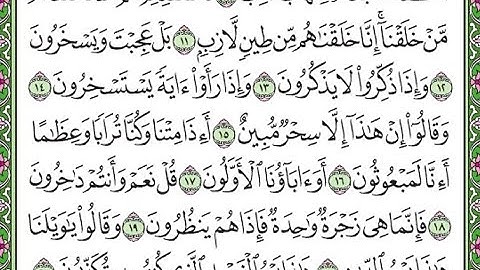 مَّنْ خَلَقْنَآ ۚ إِنَّا خَلَقْنَٰهُم مِّن طِينٍ لَّازِبٍۭ ١١ بَلْ عَجِبْتَ وَيَسْخَرُونَ
١٢ وَإِذَا ذُكِّرُوا۟ لَا يَذْكُرُونَ ١٣ وَإِذَا رَأَوْا۟ ءَايَةً يَسْتَسْخِرُونَ ١٤
وَقَالُوٓا۟ إِنْ هَٰذَآ إِلَّا سِحْرٌ مُّبِينٌ ١٥ أَءِذَا مِتْنَا وَكُنَّا تُرَابًا وَعِظَٰمًا
أَءِنَّا لَمَبْعُوثُونَ ١٦ أَوَءَابَآؤُنَا ٱلْأَوَّلُونَ ١٧ قُلْ نَعَمْ وَأَنتُمْ دَٰخِرُونَ
١٨ فَإِنَّمَا هِىَ زَجْرَةٌ وَٰحِدَةٌ فَإِذَا هُمْ يَنظُرُونَ ١٩ وَقَالُوا۟ يَٰوَيْلَنَا